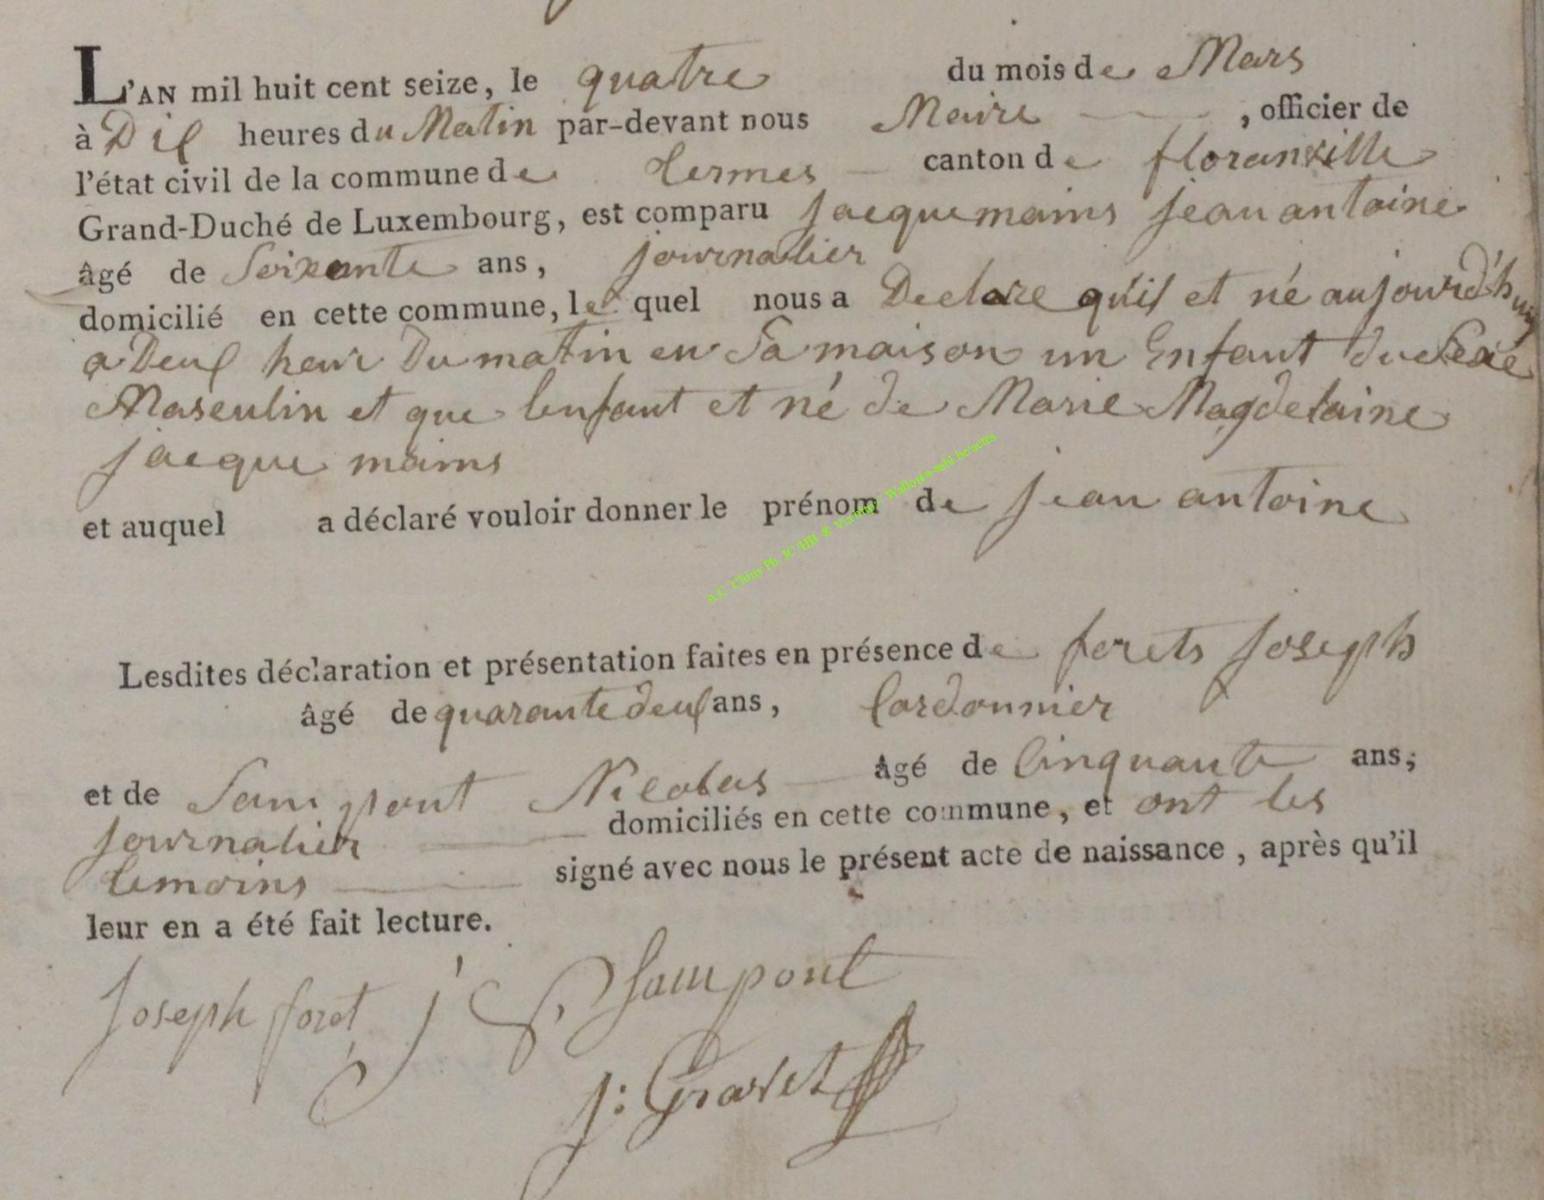 L'AN mil huit cent seize, le quatre du mois de Mars
à Dix heures du Matin par-devant nous Maire , officier de
l'état civil de la commune de termes canton de floranville
Grand-Duché de Luxembourg, est comparu jacquemains jean antoine
âgé de Soixante ans, journalier
domicilié en cette commune, lequel nous a Declare qu'il et né aujourd'huy
a Deux heur Du matin en Sa maison un Enfant du Sexe
Masculin et que lenfant et né de Marie Magdelaine
jacque mains
et auquel a déclaré vouloir donner le prénom de jean antoine
Lesdites déclaration et présentation faites en présence de forets joseph
âgé de quarante deux ans, Cordonnier
et de Sampont Nicolas âgé de Cinquante ans;
journalier domiciliés en cette commune, et ont les
temoins signé avec nous le présent acte de naissance, après qu'il
leur en a été fait lecture.
Joseph foret
Sampont
j: Gravet